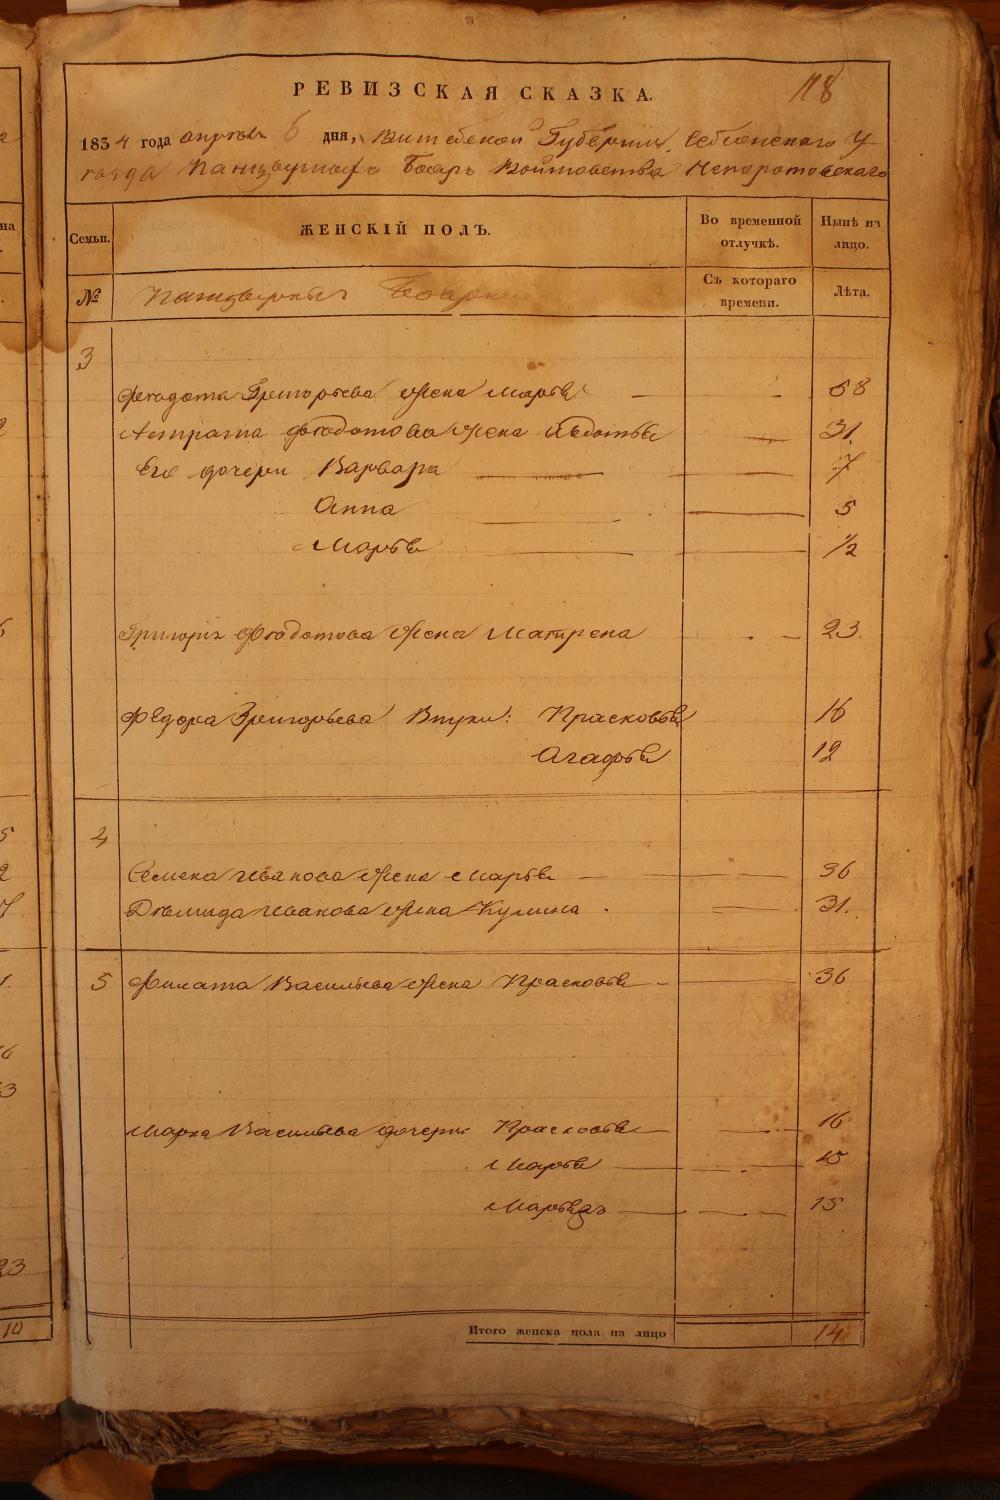 118
РЕВИЗСКАЯ СКАЗКА.
1854 года апреля 6 дня, Витебской Губернии, Себежскаго У
езда Панцерныхъ Бояръ Войтовства Непоротовскаго
Семьи. ЖЕНСКІЙ ПОЛЪ. Во временной отлучкѣ. Нынѣ на лицо.
№ Панцерныхъ Бояръ Съ котораго времени. Лѣта.
3
Федота Григорьева жена Марья 58
Федотова жена Авдотья 31.
Его дочери Варвара 7
Анна 5
Марья 1/2
Григорія Федотова жена Матрена 23.
Федора Григорьева Внуки: Прасковья 16
Агафья 12
4
Семена Иванова жена Марья 36
Иванова жена Кулина 31.
5 Филата Васильева жена Прасковья 36
Марка Васильева дочери Прасковья 16
Марья 15
15
Итого женска пола на лицо 14
2
5
2
7
1.
6
3
23
10